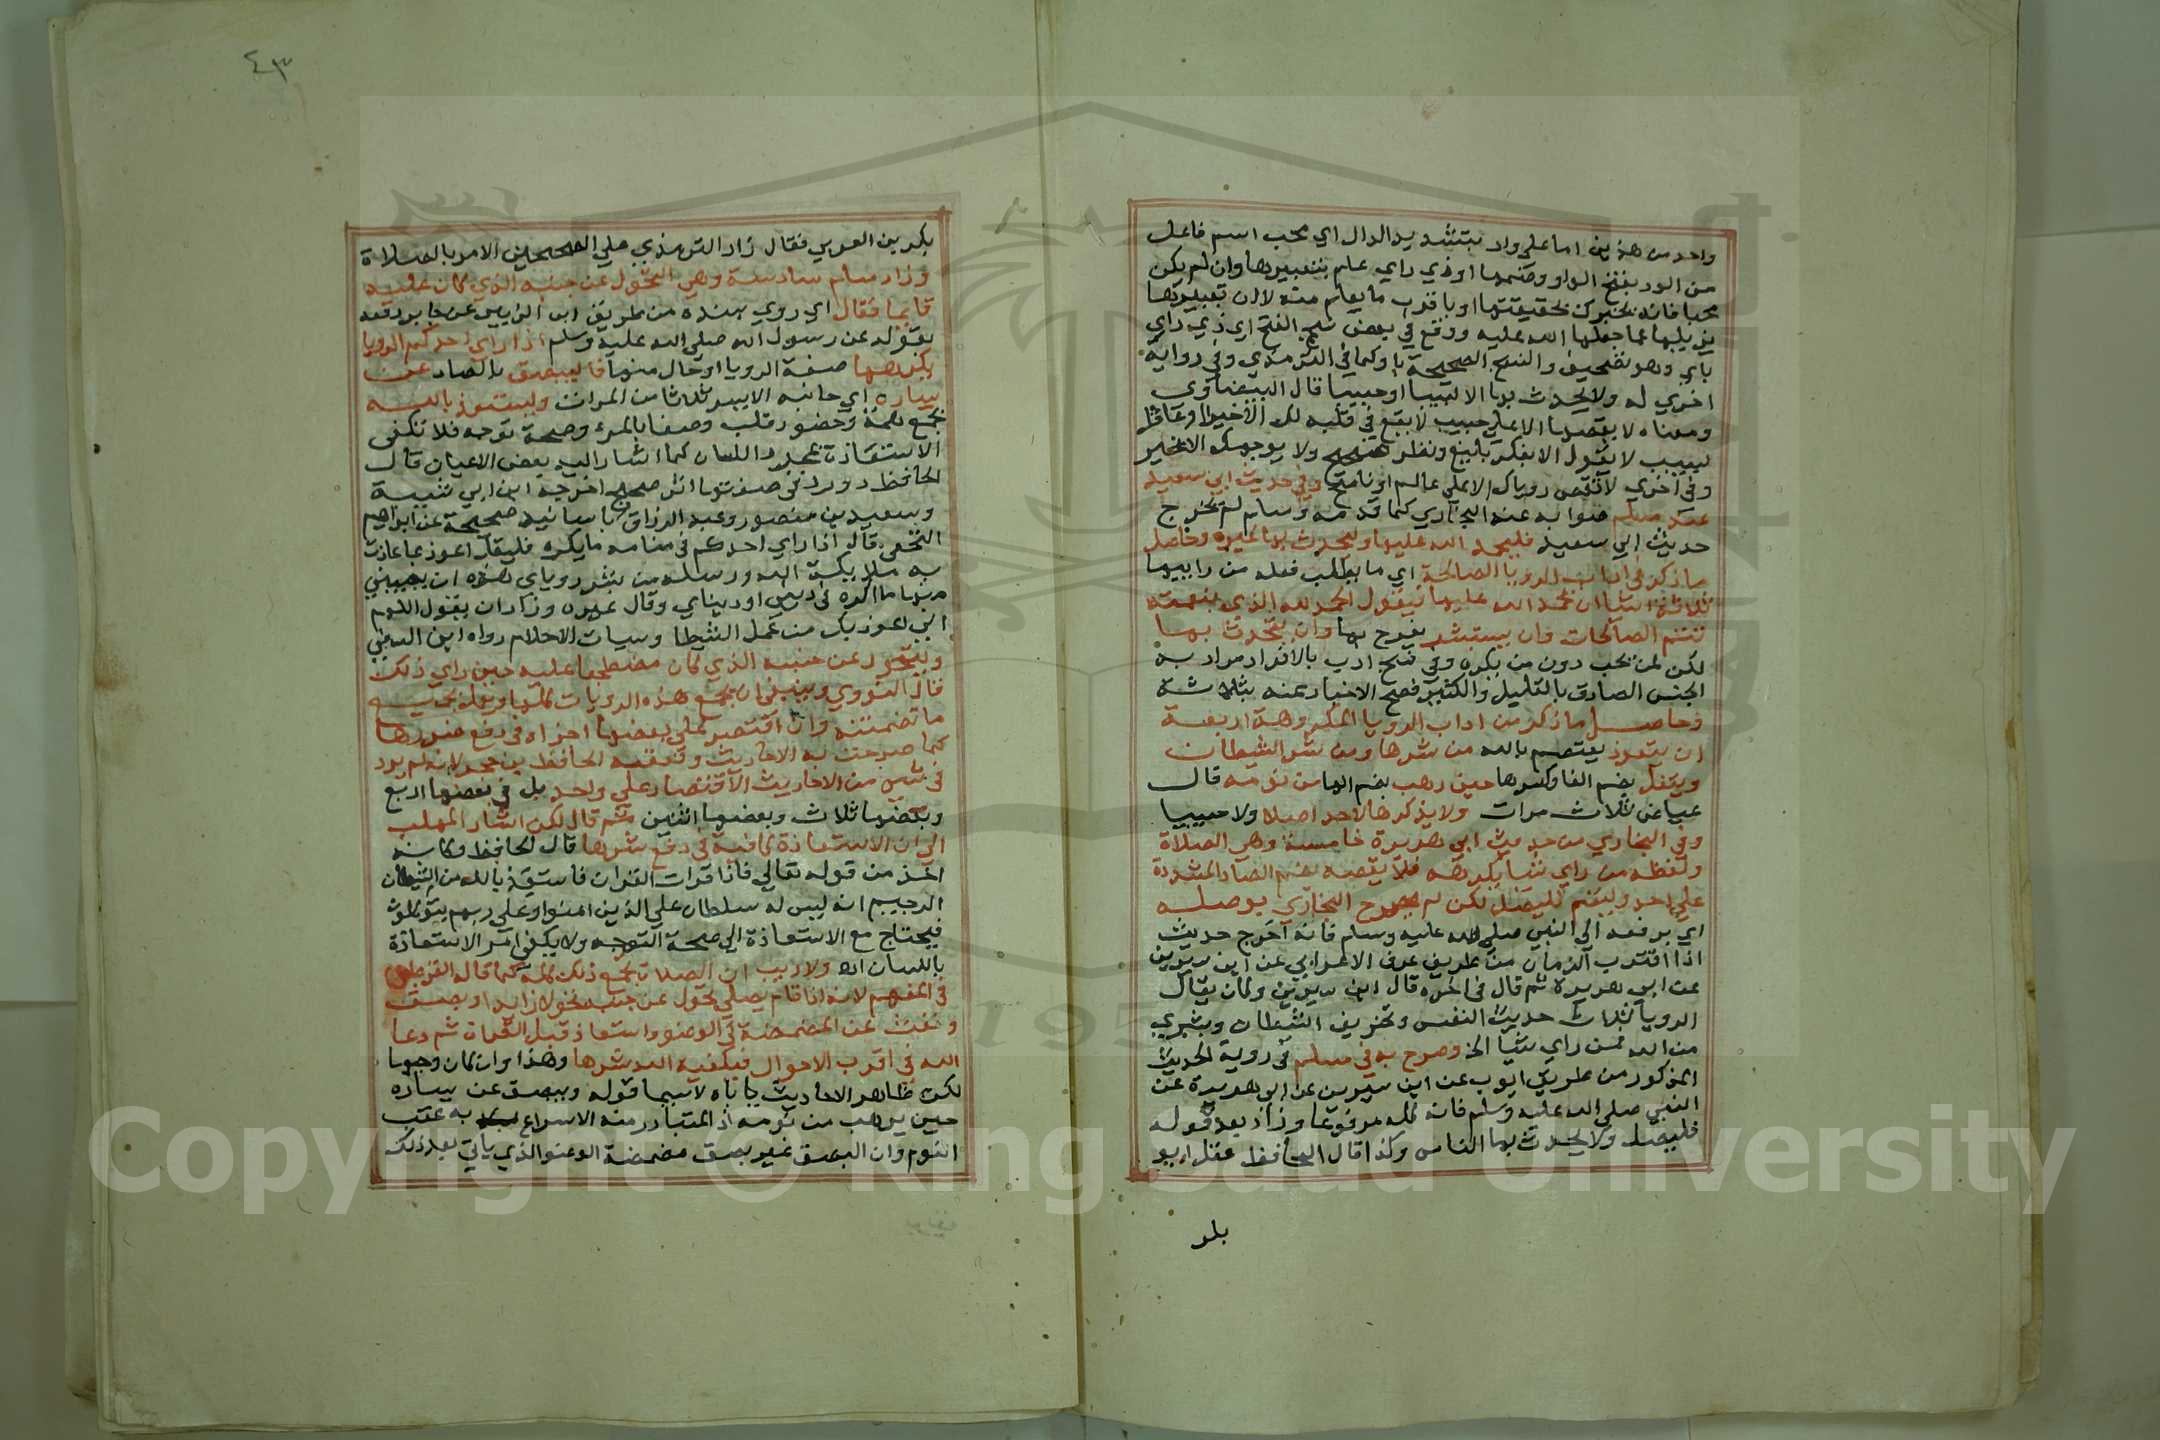 واحد من هذين اما على واد بتشديد الدال اي محب اسم فاعل
من الود بفتح الواو وضمها او ذي راي عالم بتعبيرها وان لم يكن
محبا فانه يخبرك بحقيقتها او باقرب ما يعلم منه لا ان تعبيرها
يزيلها عما جعلها الله عليه ووقع في بعض نسخ الفتح اي ذي راي
باي وهو تصحيف والنسخ الصحيحة با وكما في الترمذي وفي رواية
اخري له ولا يحدث بها الا لبيبا او حبيبا قال البيضاوي
ومعناه لا يقصها الا على حبيب لا يقع في قلبه لك الا خيرا وعاقل
لبيب لا يقول الا بفكر بليغ ونظر صحيح ولا يوجهك الا بخير
وفي اخري لا تقص روياك الا على عالم او ناصح وفي حديث ابي سعيد
عند مسلم صوابه عند البخاري كما قدمه ومسلم لم يخرج
حديث ابي سعيد فليحمد الله عليها وليحدث بها غيره وحاصل
ما ذكر في اداب الرويا الصالحة اي ما يطلب فعله من راييها
ثلاثة اشيا ان يحمد الله عليها فيقول الحمد لله الذي بنعمته
تتم الصالحات وان يستبشر يفرح بها وان يتحدث بها
لكن لمن يحب دون من يكره وفي نسخ ادب بالافراد مراد به
الجنس الصادق بالقليل والكثير فصح الاخبار عنه بثلاثة
وحاصل ما ذكر من اداب الرويا المكروهة اربعة
ان يتعوذ يعتصم بالله من شرها ومن شر الشيطان
ويتفل بضم الفا وكسرها حين يهب بضم الها من نومه قال
عياض ثلاث مرات ولا يذكرها لاحد اصلا ولا حبيبا
وفي البخاري من حديث ابي هريرة خامسة وهي الصلاة
ولفظه من راي شيا يكرهه فلا يقصه بضم الصاد المشددة
على احد وليقم فليصل لكن لم يصرح البخاري بوصله
اي برفعه الى النبي صلى الله عليه وسلم فانه اخرج حديث
اذا اقترب الزمان من طريق عوف الاعرابي عن ابن سيرين
عن ابي هريرة ثم قال في اخره قال ابن سيرين وكان يقال
الرويا ثلاث حديث النفس وتخويف الشيطان وبشري
من الله فمن راي شيا الخ وصرح به في مسلم في رواية الحديث
المذكور من طريق ايوب عن ابن سيرين عن ابي هريرة عن
النبي صلى الله عليه وسلم فانه كله مرفوعا وزاد بعد قوله
فليصل ولا يحدث بها الناس وكذا قال الحافظ غفل ابو
بكر
٤٣
بكر بن العربي فقال زاد الترمذي على الصحيحين الامر بالصلاة
وزاد مسلم سادسة وهي التحول عن جنبه الذي كان عليه
قايما فقال اي روي بسنده من طريق ابي الزبير عن جابر رفعه
بقوله عن رسول الله صلى الله عليه وسلم اذا راي احدكم الرويا
يكرهها صفة الرويا او حال منها فليبصق بالصاد عن
يساره اي جانبه الايسر ثلاثا من المرات وليستعوذ بالله
بجمع همة وحضور قلب وصفا بالمرء وصحة توجه فلا تكفي
الاستعاذة بمجرد اللسان كما اشار اليه بعض الاعيان قال
الحافظ وورد في صفتها اثر صحيح اخرجه ابن ابي شيبة
وسعيد بن منصور وعبد الرزاق باسانيد صحيحة عن ابراهيم
النخعي قال اذا راي احدكم في منامه ما يكره فليقل اعوذ بما عاذت
به ملايكة الله ورسله من شر روياي هذه ان يصيبني
منها ما اكره في ديني او دنياي وقال غيره وزاد ان يقول اللهم
اني اعوذ بك من عمل الشيطا وسيات الاحلام رواه ابن السني
ويتحول عن جنبه الذي كان مضطجعا عليه حين راي ذلك
قال النووي وينبغي ان يجمع هذه الروايات كلها ويعمل بجميع
ما تضمنته وان اقتصر على بعضها اجزاه في دفع ضررها
كما صرحت به الاحاديث وتعقبه الحافظ بن حجر لانه لم يرد
في شي من الاحاديث الاقتصار على واحد بل في بعضها اربع
وبعضها ثلاث وبعضها اثنين ثم قال لكن اشار المهلب
الى ان الاستعاذة كافية في دفع شرها قال الحافظ وكانه
اخذ من قوله تعالي فاذا قرات القران فاستعذ بالله من الشيطان
الرجيم انه ليس له سلطان على الذين امنوا وعلى ربهم يتوكلون
فيحتاج مع الاستعاذة الى صحة التوجه ولا يكفي امر الاستعاذة
باللسان اه ولا ريب ان الصلاة تجمع ذلك كله كما قاله القرطبي
في المفهم لانه اذا قام يصلي تحول عن جنبه تحولا زايدا وبصق
ونفث عن المضمضة في الوضو واستعاذ قبل القراة ثم دعا
الله في اقرب الاحوال فيكفيه الله شرها وهذا وان كان وجيها
لكن ظاهر الاحاديث ياباه لا سيما قوله ويبصق عن يساره
حين يهب من نومه اذ المتبادر منه الاسراع به عقب
النوم وان البصق غير بصق مضمضة الوضو الذي ياتي بعد ذلك
Copyright © King Saud University
1957